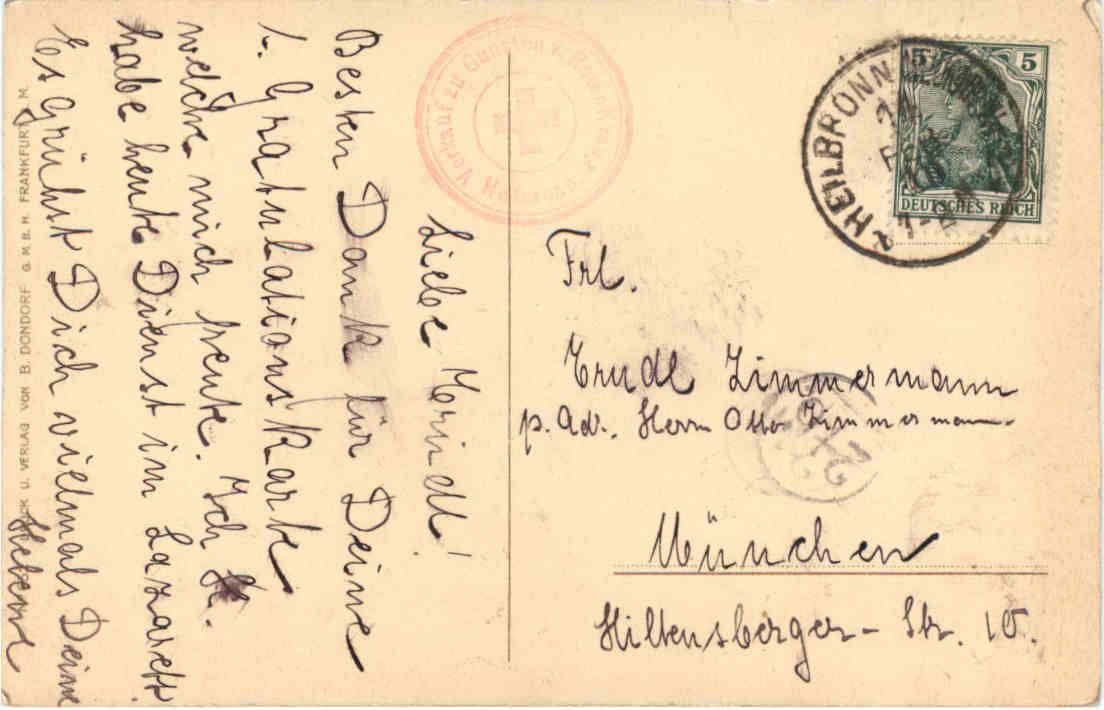 Liebe Trudl!
Besten Dank für Deine
l. Gratulationskarte
welche mich freute. Ich
habe heute Dienst im Lazarett
Es grüßt Dich vielmals Deine
Helene
DRUCK U. VERLAG VON B. DONDORF G. M. B. H. FRANKFURT A. M.
Verkauf zu Gunsten v. Roten Kreuz
HEILBRONN
5 5
DEUTSCHES REICH
Frl.
Trudl Zimmermann
p. Adr. Herrn Otto Zimmermann
München
Hiltensberger-Str. 10.